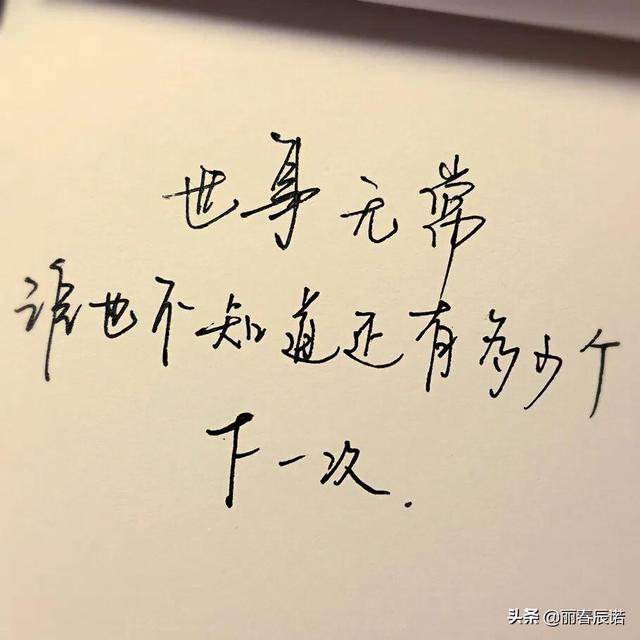 世事无常
谁也不知道还有多少个
下一次.
头条 @丽春辰诺